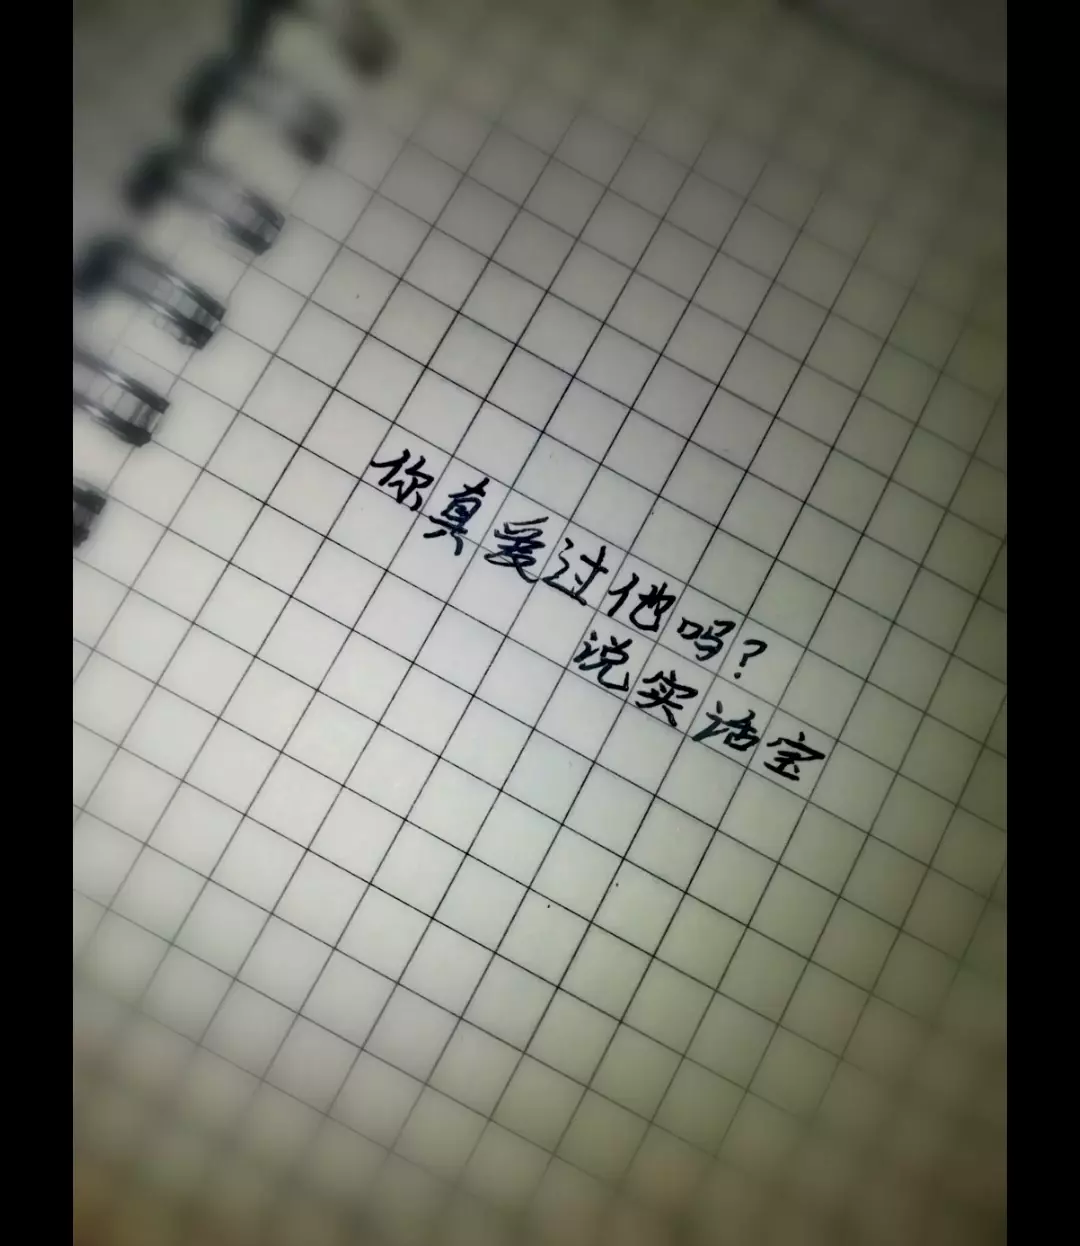 你真爱过他吗?
说实话宝